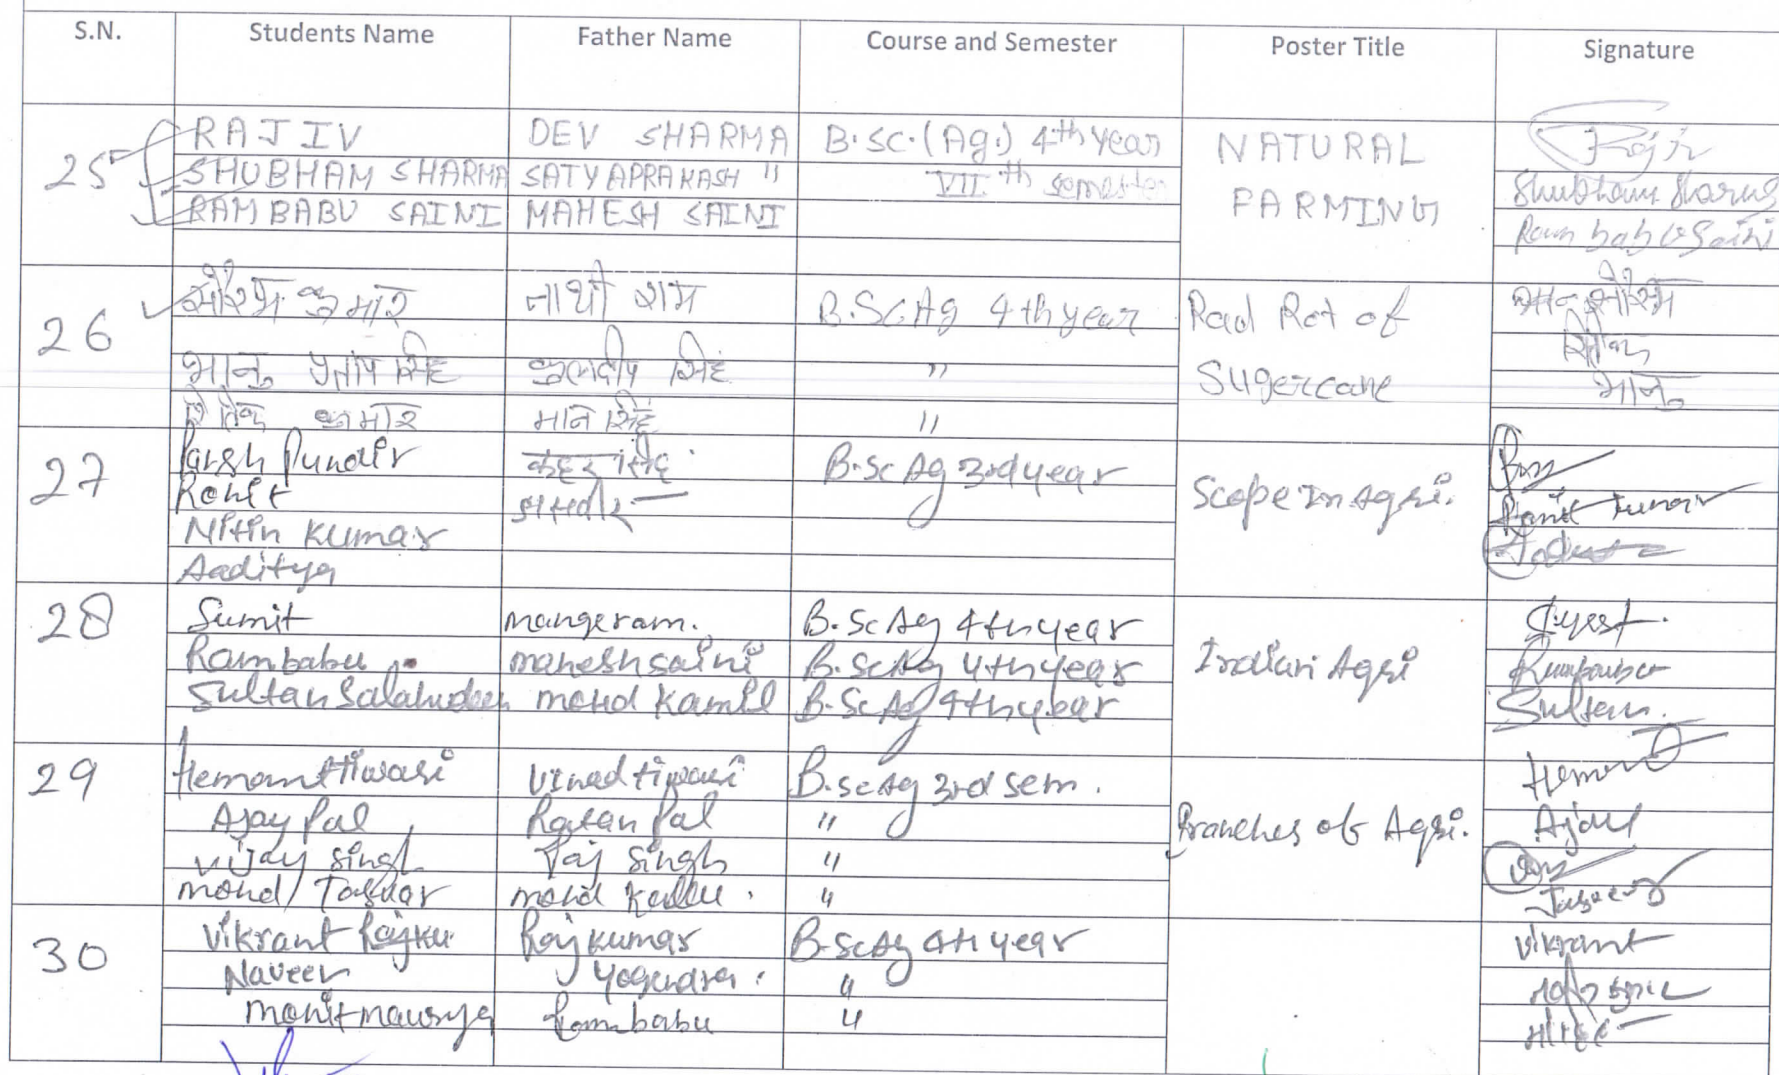 S.N. Students Name Father Name Course and Semester Poster Title Signature
25 RAJIV DEV SHARMA B.SC.(Ag.) 4th Year NATURAL
SHUBHAM SHARMA SATYAPRAKASH " VII th semester FARMING Shubham Sharma
RAMBABU SAINI MAHESH SAINI Rambabu Saini
26 सौरभ कुमार नाथी राम B.Sc.Ag 4th year Read Rot of
भानु प्रताप सिंह कुलदीप सिंह " Sugercane भानु
कुमार मान सिंह "
27 Parsh Pundir B.Sc Ag 3rd year Scope in Agri.
Rohit
Nitin Kumar
Aaditya
28 Sumit mangeram. B.Sc Ag 4th year Indian Agri
Rambabu mahesh saini B.Sc Ag 4th year Rambabu
Sultan Salahudeen mohd Kamil B.Sc Ag 4th year Sultan.
29 Hemant tiwari Vinod tiwari B.Sc Ag 3rd sem. Branches of Agri. Hemant
Ajay Pal Ratan Pal " Ajay
Vijay Singh Raj Singh "
mohd Mohd Kallu. "
30 Vikrant Rajku Rajkumar B.Sc Ag 4th year Vikrant
Naveen Yogendra "
Mohit maurya Rambabu " मोहित